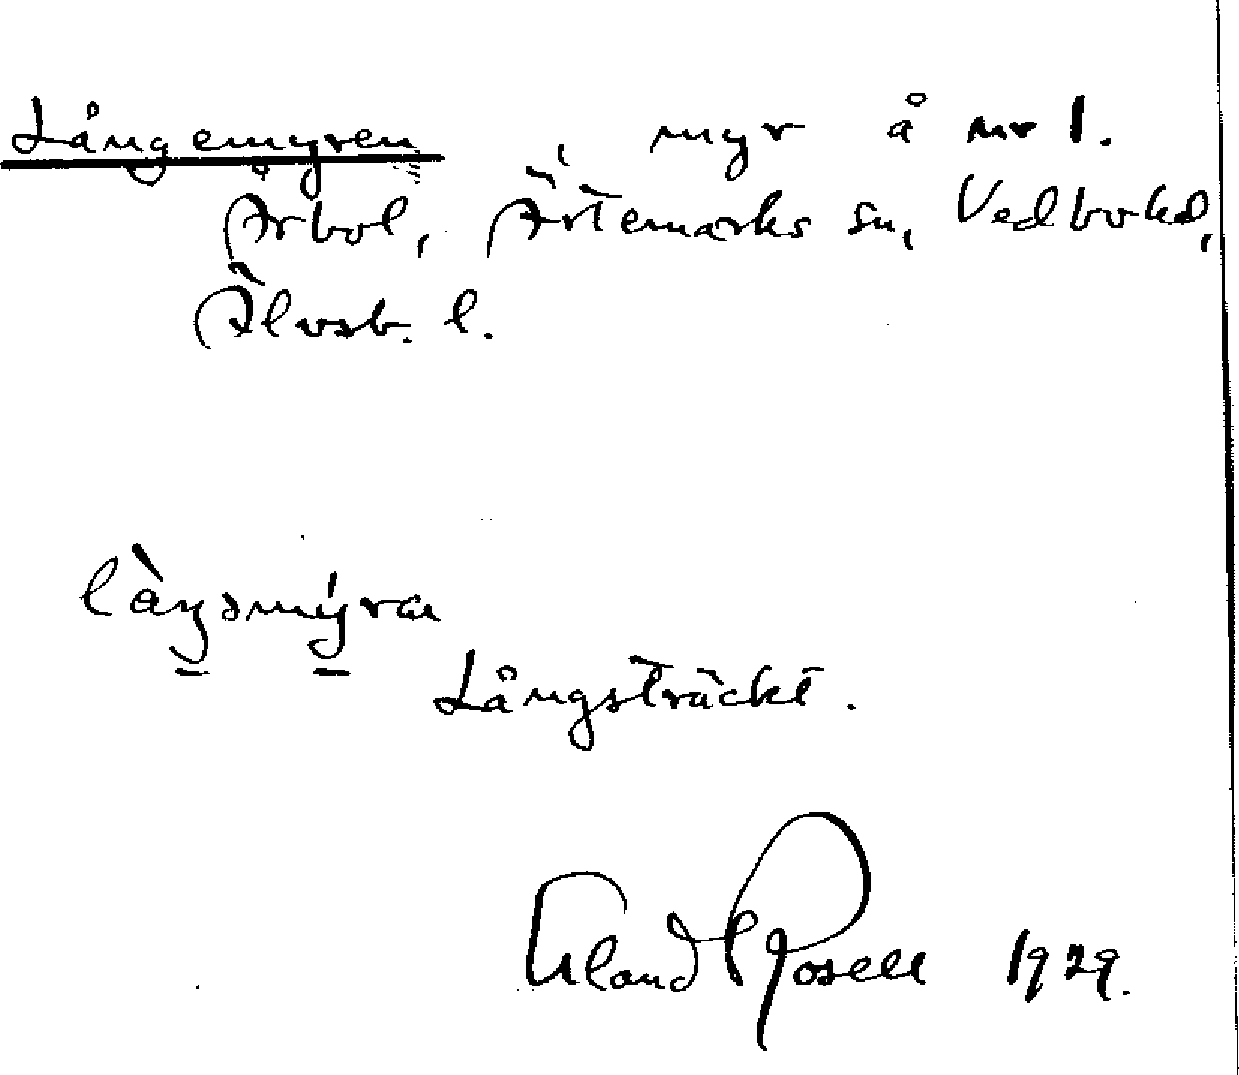 Långemyren, myr å nr 1.
Årbol, Ärtemarks sn, Vedbo hd,
Älvsb. l.
Långsträckt.
Erland Rosell 1929.